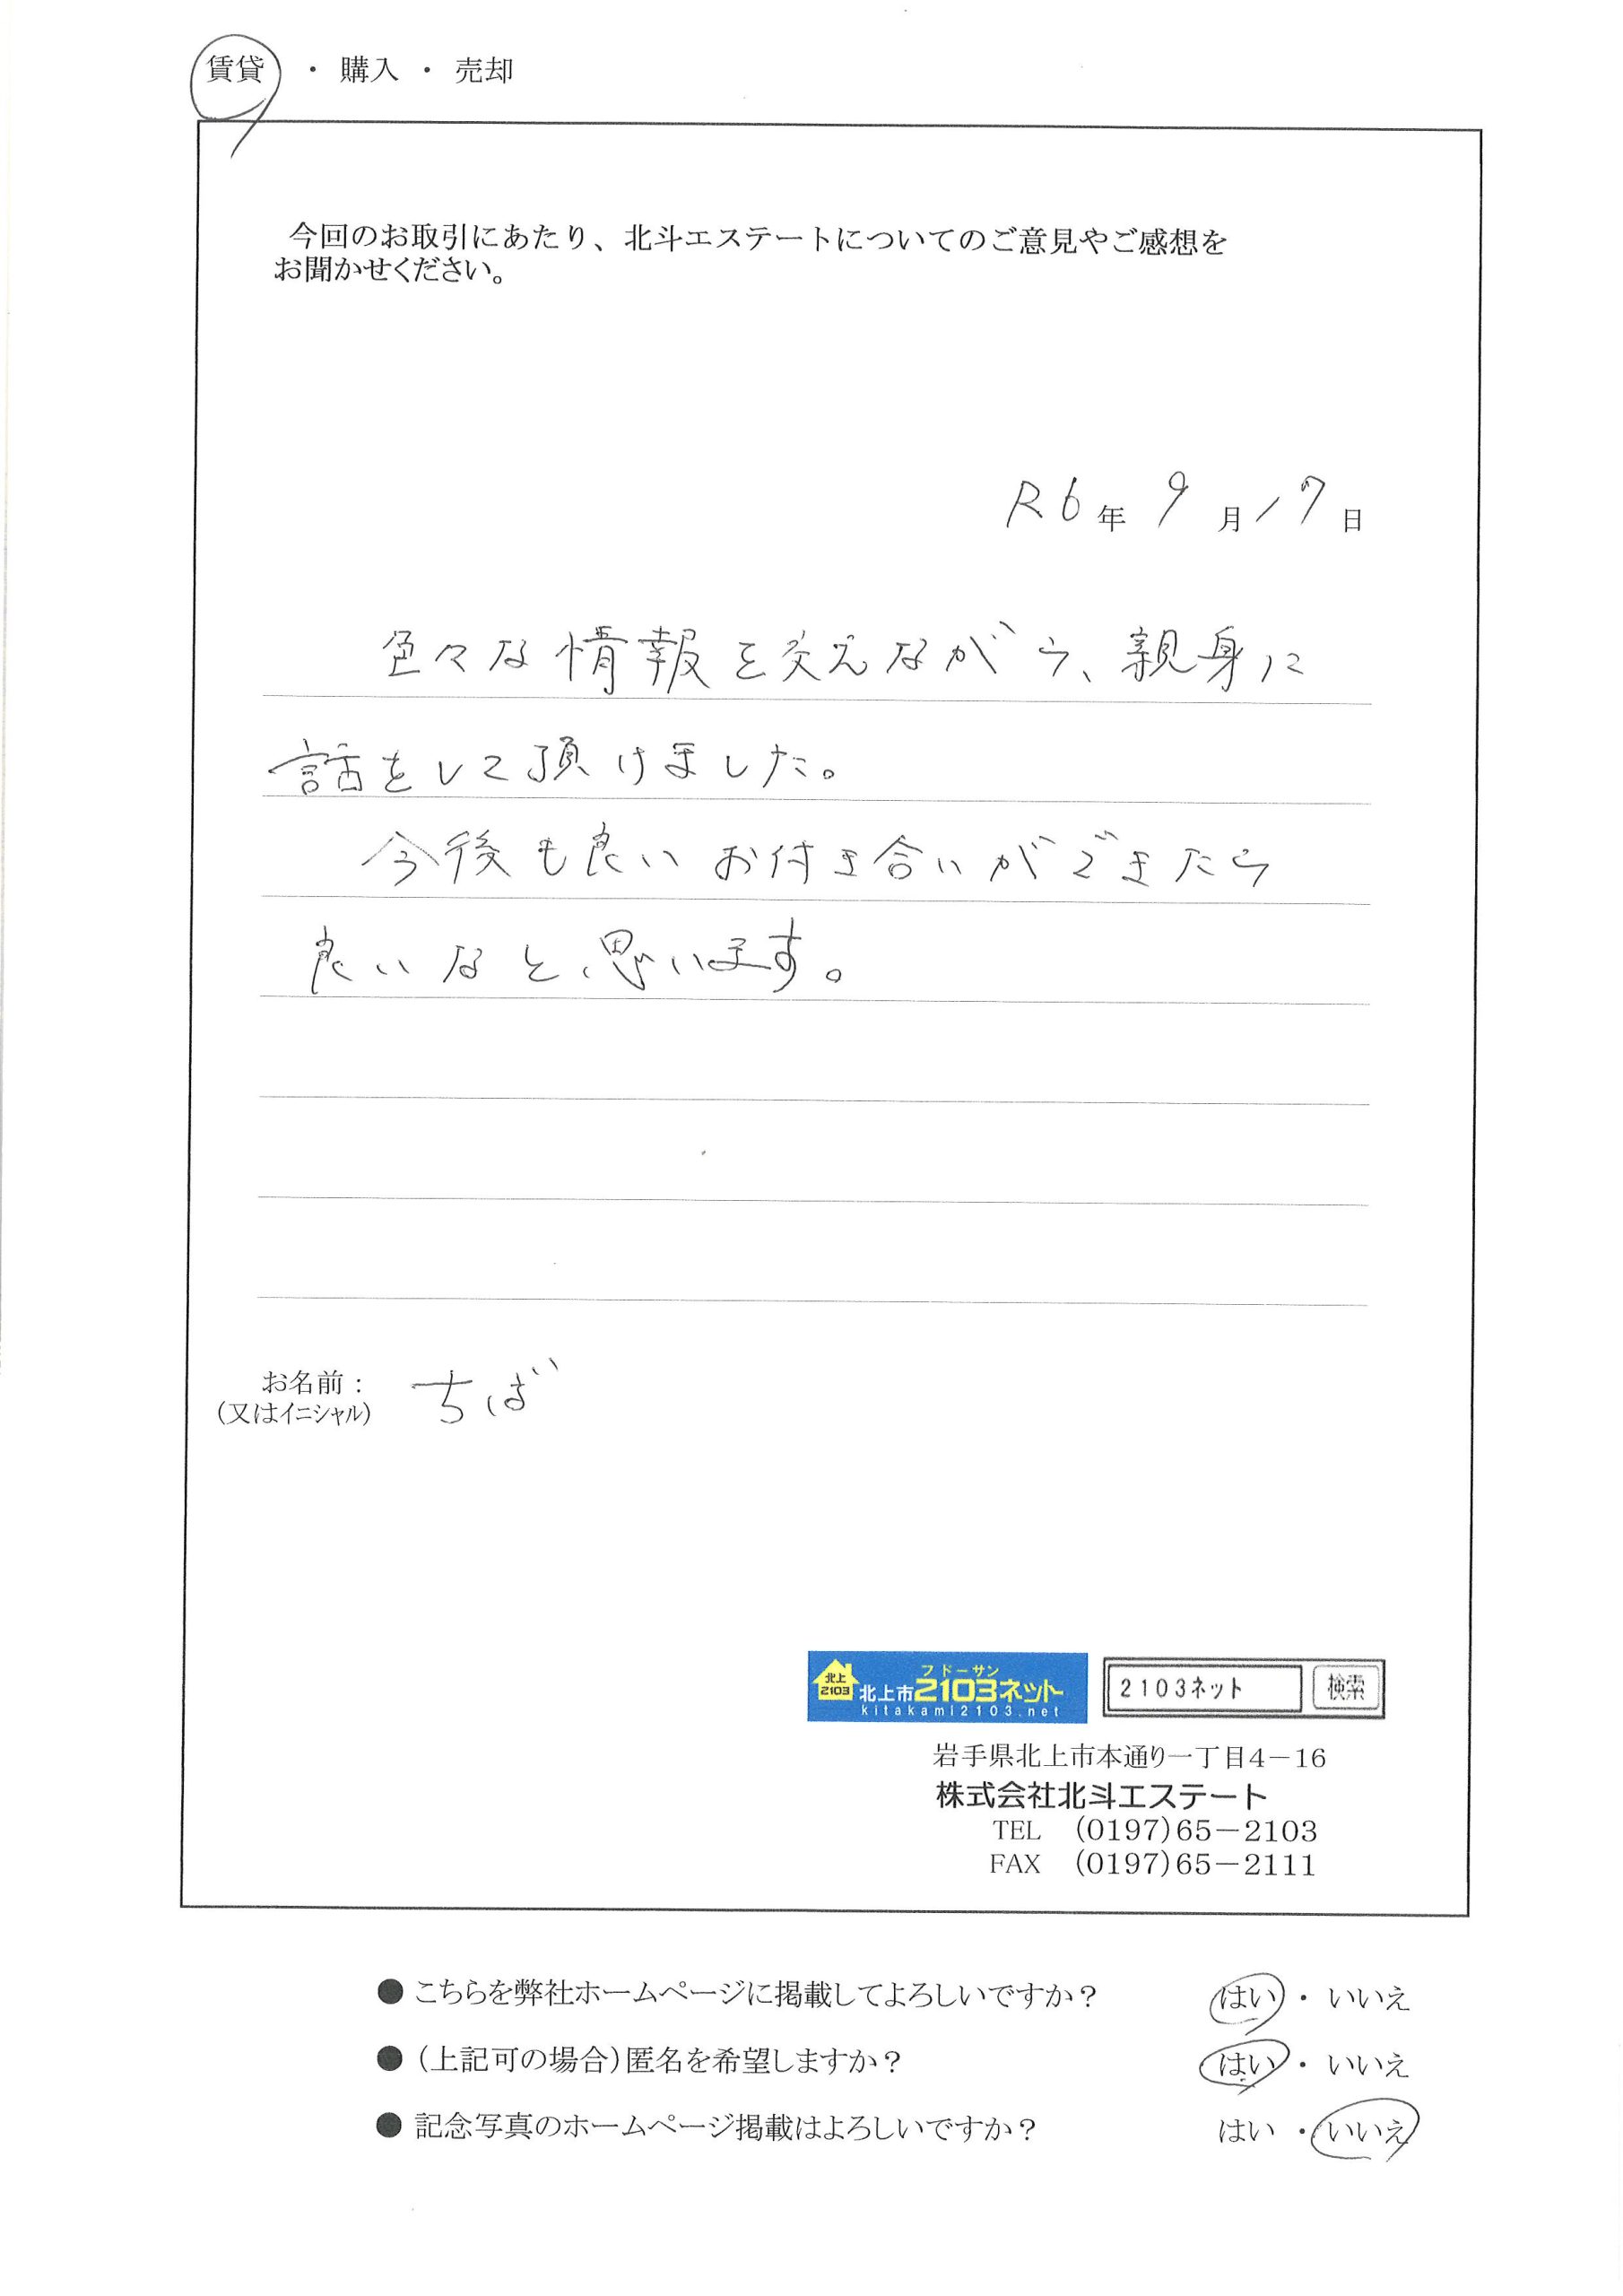 賃貸 ・ 購入 ・ 売却
今回のお取引にあたり、北斗エステートについてのご意見やご感想を
お聞かせください。
R6年 9月17日
色々な情報を交えながら、親身に
話をして頂けました。
今後も良いお付き合いができたら
良いなと思います。
お名前: ちば
(又はイニシャル)
北上 2103 北上市2103ネット フドーサン
kitakami2103.net
2103ネット 検索
岩手県北上市本通り一丁目4-16
株式会社北斗エステート
TEL (0197)65-2103
FAX (0197)65-2111
● こちらを弊社ホームページに掲載してよろしいですか? はい ・ いいえ
● (上記可の場合)匿名を希望しますか? はい ・ いいえ
● 記念写真のホームページ掲載はよろしいですか? はい ・ いいえ